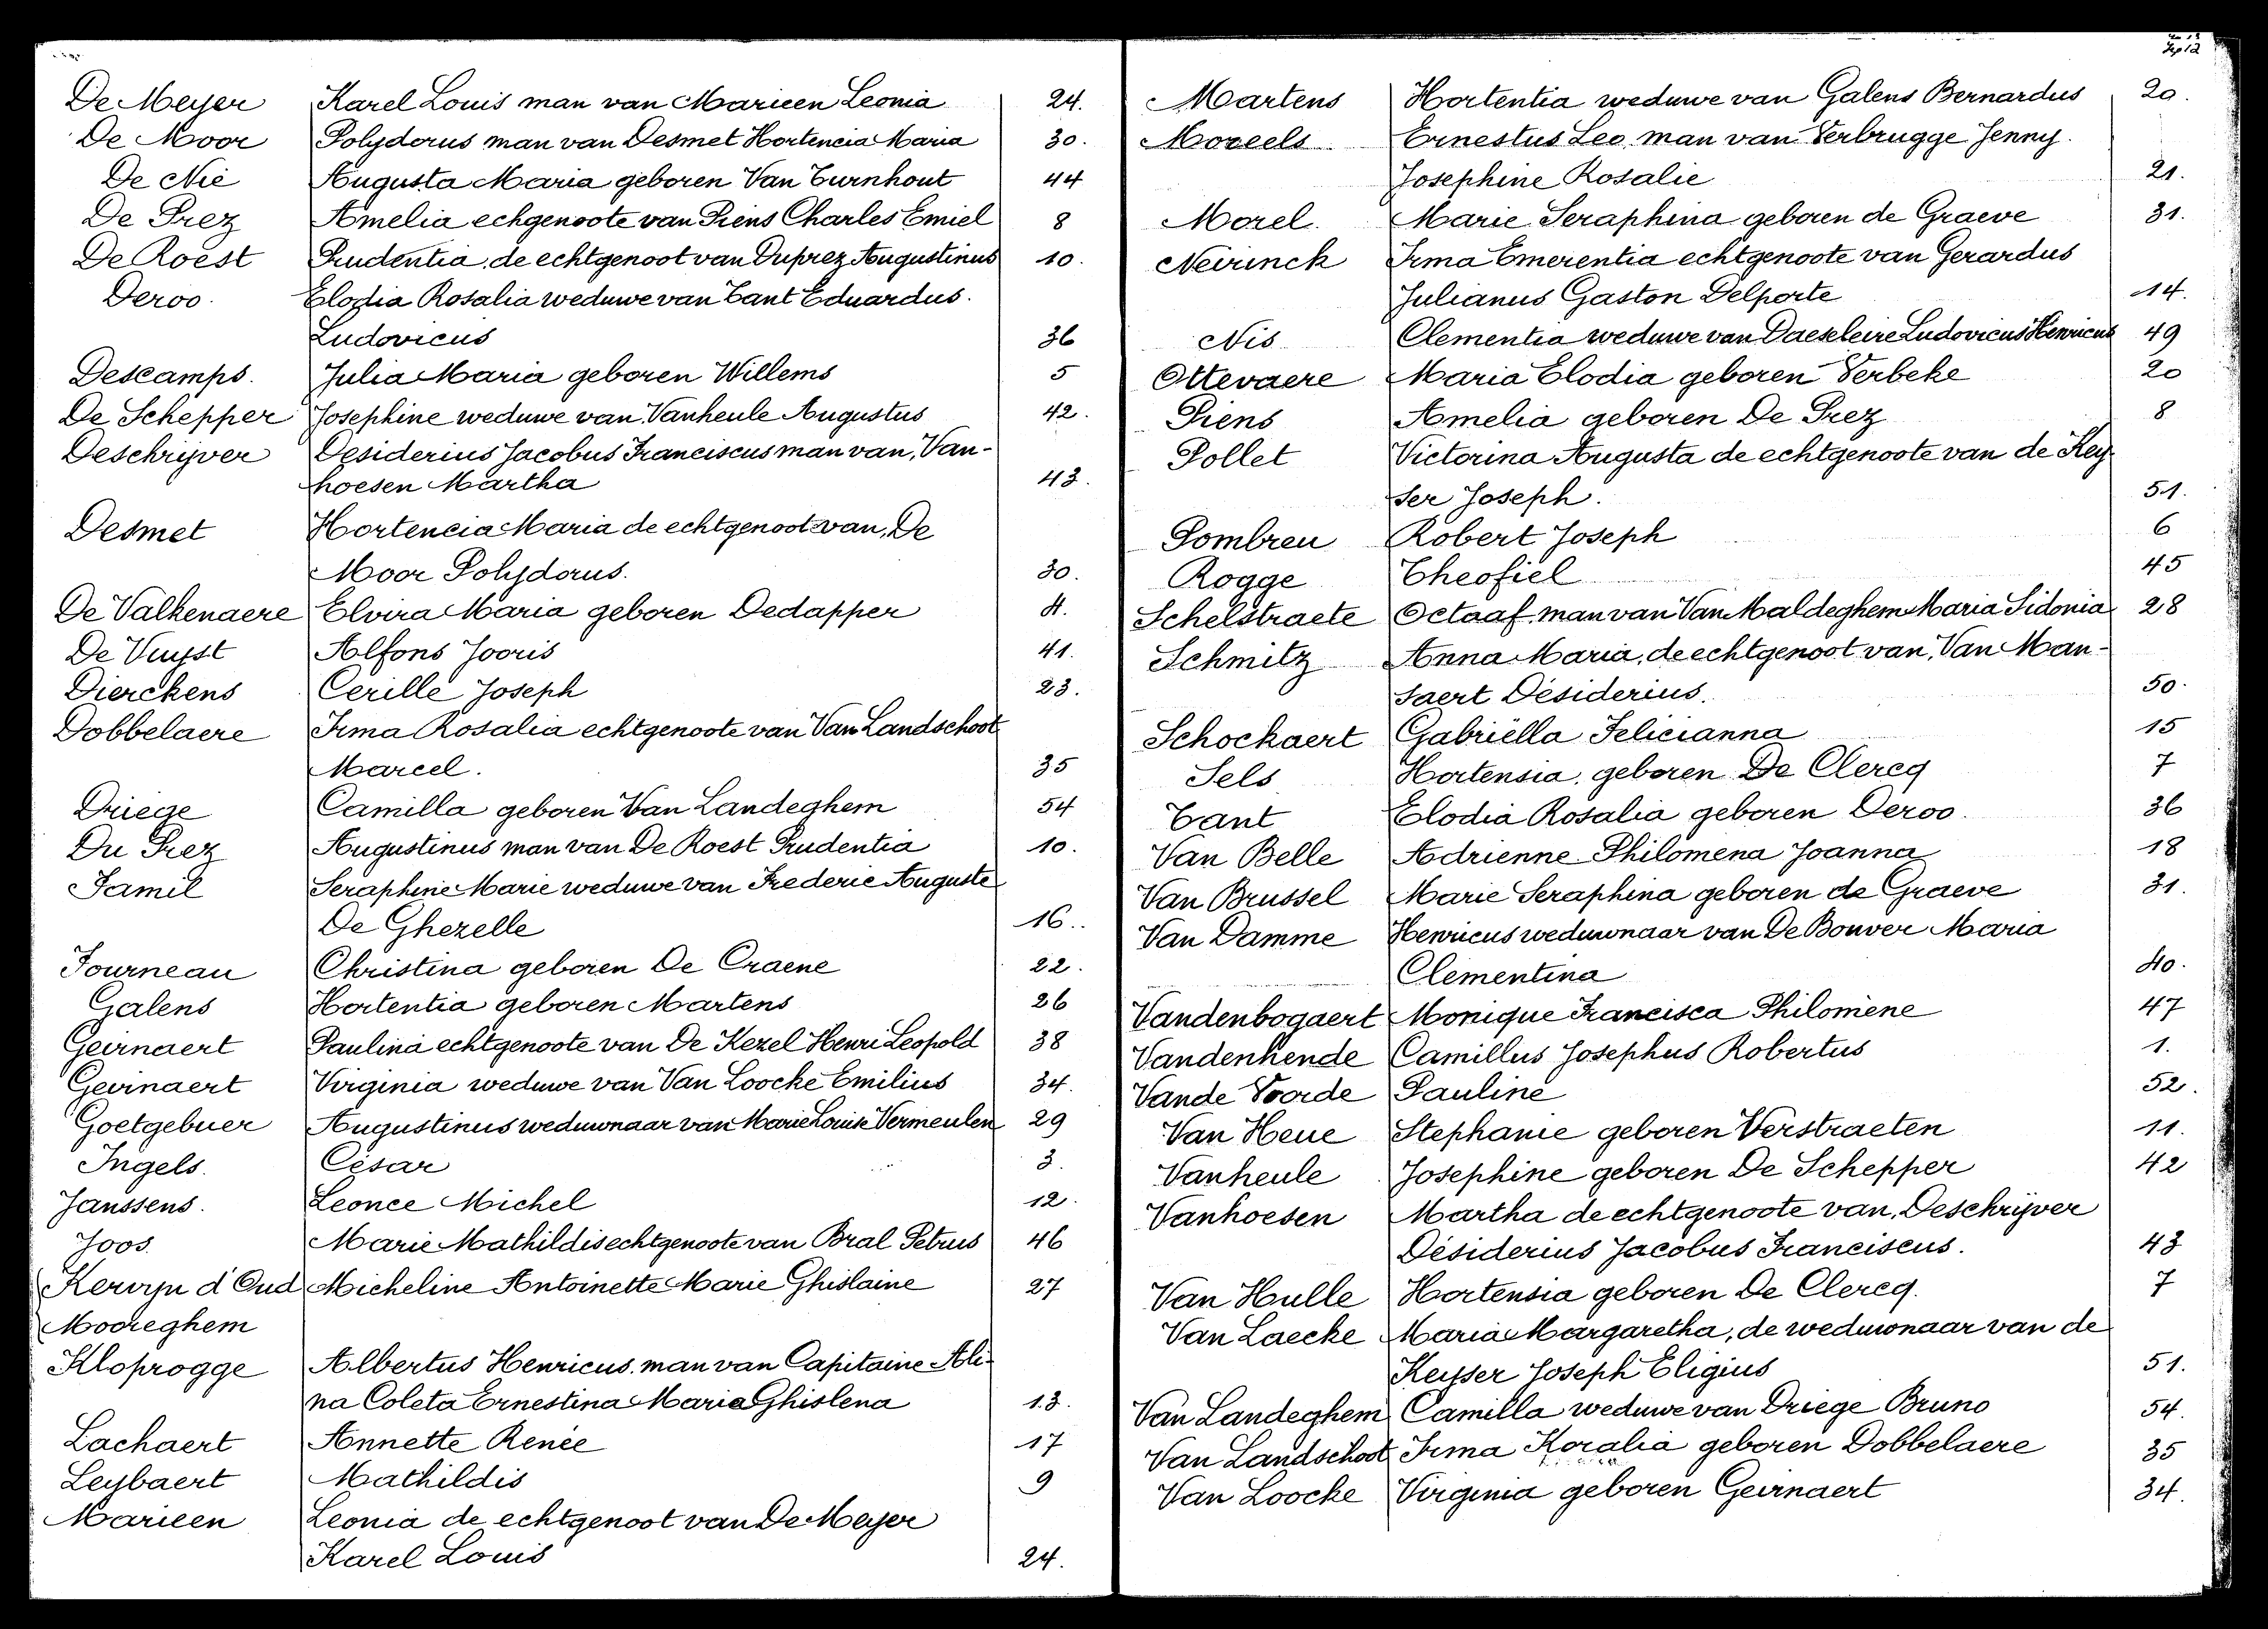 De Meyer Karel Louis man van Marieen Leonia 24.
De Moor Polydorus man van Desmet Hortencia Maria 30.
De Nie Augusta Maria geboren Van Turnhout 44
De Prez Amelia echgenoote van Piens Charles Emiel 8
De Roest Prudentia, de echtgenoot van Duprez Augustinus 10.
Deroo. Elodia Rosalia weduwe van Tant Eduardus.
Ludovicus 36
Descamps. Julia Maria geboren Willems 5
De Schepper Josephine weduwe van Vanheule Augustus 42.
Deschrijver Desiderius Jacobus Franciscus man van, Van-
hoesen Martha 43.
Desmet Hortencia Maria de echtgenoot van, De
Moor Polydorus. 30.
De Valkenaere Elvira Maria geboren Dedapper 4.
De Vuyst Alfons Jooris 41.
Dierckens Cerille Joseph 23.
Dobbelaere Irma Rosalia echtgenoote van Van Landschoot
Marcel. 35
Driege Camilla geboren Van Landeghem 54
Du Prez Augustinus man van De Roest Prudentia 10.
Famil Seraphine Marie weduwe van Frederic Auguste
De Ghezelle 16..
Fourneau Christina geboren De Craene 22.
Galens Hortentia geboren Martens 26
Geirnaert Paulina echtgenoote van De Kezel Henri Leopold 38
Geirnaert Virginia weduwe van Van Loocke Emilius 34.
Goetgebuer Augustinus weduwnaar van Marie Louise Vermeulen 29
Ingels. César 3.
Janssens. Leonce Michel 12.
Joos. Marie Mathildis echtgenoote van Bral Petrus 46
Kervyn d'Oud Micheline Antoinette Marie Ghislaine 27
Mooreghem
Kloprogge Albertus Henricus man van Capitaine Ali-
na Coleta Ernestina Maria Ghislena 13.
Lachaert Annette Renée 17
Leybaert Mathildis 9
Marieen Leonia de echtgenoot van De Meyer
Karel Louis 24.
Martens Hortentia weduwe van Galens Bernardus 20.
Moreels Ernestus Leo man van Verbrugge Jenny.
Josephine Rosalie 21.
Morel. Marie Seraphina geboren de Graeve 31.
Neirinck Irma Emerentia echtgenoote van Gerardus
Julianus Gaston Delporte 14.
Nis Clementia weduwe van Daeseleire Ludovicus Henricus 49
Ottevaere Maria Elodia geboren Verbeke 20
Piens Amelia geboren De Prez 8
Pollet Victorina Augusta de echtgenoote van de Key-
ser Joseph. 51.
Pombreu Robert Joseph 6
Rogge Theofiel 45
Schelstraete Octaaf man van Van Maldeghem Maria Sidonia 28
Schmitz Anna Maria, de echtgenoot van, Van Man-
saert Désiderius. 50.
Schockaert Gabriëlla Felicianna 15
Sels Hortensia geboren De Clercq 7
Tant Elodia Rosalia geboren Deroo. 36
Van Belle Adrienne Philomena Joanna 18
Van Brussel Marie Seraphina geboren de Graeve 31.
Van Damme Henricus weduwnaar van De Bouver Maria
Clementina 40.
Vandenbogaert Monique Francisca Philomène 47
Vandenhende Camillus Josephus Robertus 1.
Vande Voorde Pauline 52.
Van Heue Stephanie geboren Verstraeten 11.
Vanheule Josephine geboren De Schepper 42
Vanhoesen Martha de echtgenoote van, Deschrijver
Désiderius Jacobus Franciscus. 43
Van Hulle Hortensia geboren De Clercq. 7
Van Laecke Maria Margaretha, de weduwnaar van de
Keyser Joseph Eligius 51.
Van Landeghem Camilla weduwe van Driege Bruno 54.
Van Landschoot Irma Koralia geboren Dobbelaere 35
Van Loocke Virginia geboren Geirnaert 34.